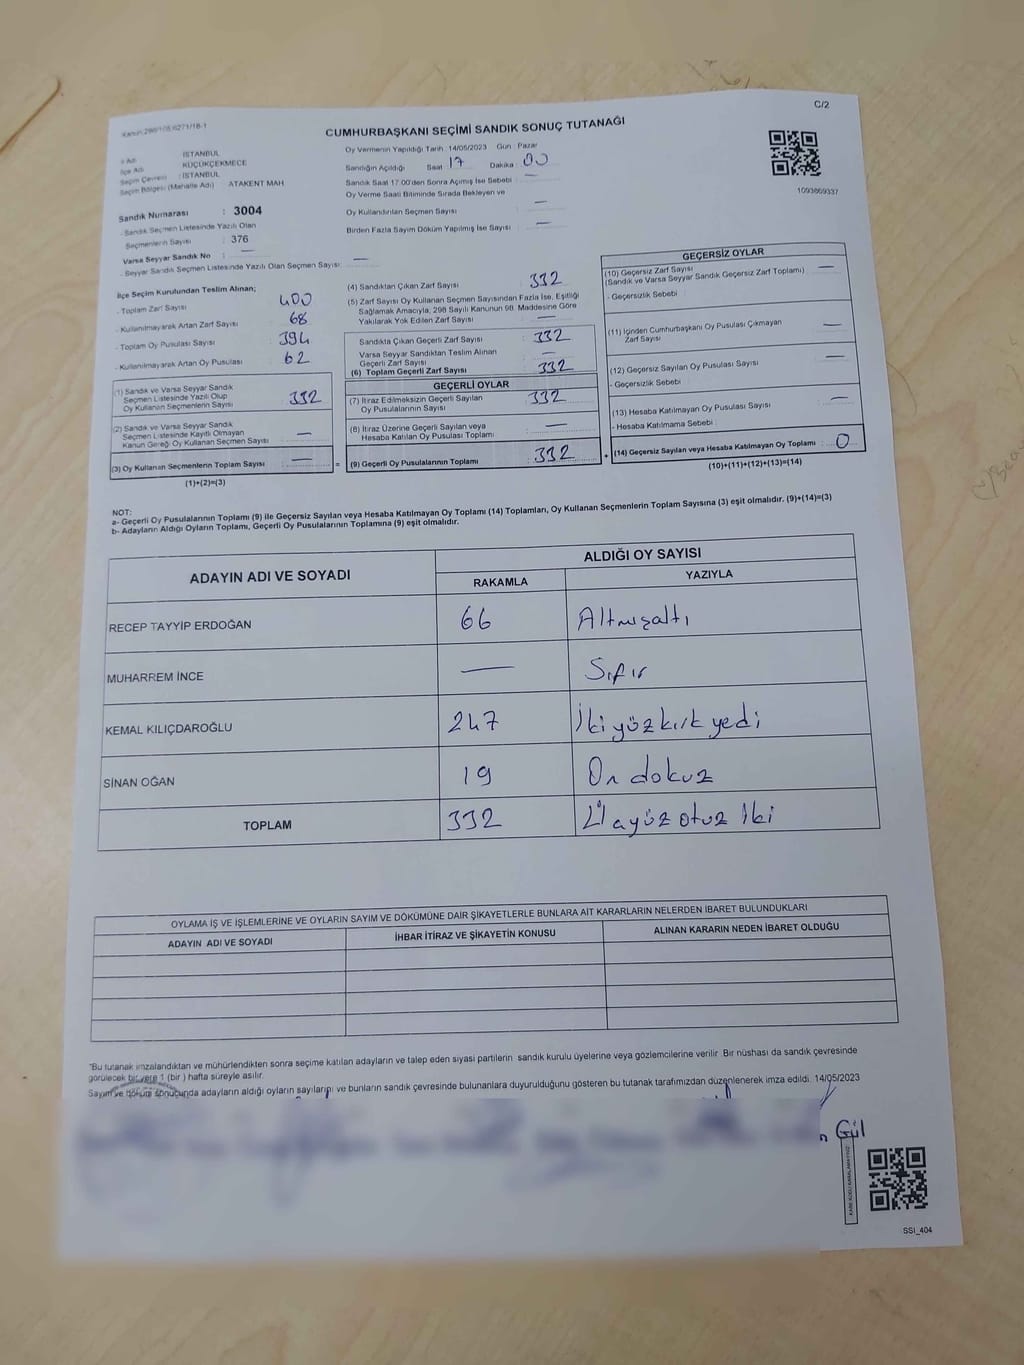 Kanun:298/105,6271/18-1
C/2
CUMHURBAŞKANI SEÇİMİ SANDIK SONUÇ TUTANAĞI
İl Adı : İSTANBUL
İlçe Adı : KÜÇÜKÇEKMECE
Seçim Çevresi : İSTANBUL
Seçim Bölgesi (Mahalle Adı) ATAKENT MAH
Sandık Numarası : 3004
- Sandık Seçmen Listesinde Yazılı Olan
Seçmenlerin Sayısı : 376
Varsa Seyyar Sandık No : —
- Seyyar Sandık Seçmen Listesinde Yazılı Olan Seçmen Sayısı: —
Oy Vermenin Yapıldığı Tarih :14/05/2023 Gün : Pazar
Sandığın Açıldığı Saat : 17 Dakika : 00
Sandık Saat 17:00'den Sonra Açımış İse Sebebi : —
Oy Verme Saati Bitiminde Sırada Bekleyen ve
Oy Kullandırılan Seçmen Sayısı : —
Birden Fazla Sayım Döküm Yapılmış İse Sayısı : —
1093869337
İlçe Seçim Kurulundan Teslim Alınan;
- Toplam Zarf Sayısı : 400
- Kullanılmayarak Artan Zarf Sayısı : 68
- Toplam Oy Pusulası Sayısı : 394
- Kullanılmayarak Artan Oy Pusulası : 62
(1) Sandık ve Varsa Seyyar Sandık
Seçmen Listesinde Yazılı Olup
Oy Kullanan Seçmenlerin Sayısı : 332
(2) Sandık ve Varsa Seyyar Sandık
Seçmen Listesinde Kayıtlı Olmayan
Kanun Gereği Oy Kullanan Seçmen Sayısı : —
(3) Oy Kullanan Seçmenlerin Toplam Sayısı : —
(1)+(2)=(3)
=
(4) Sandıktan Çıkan Zarf Sayısı : 332
(5) Zarf Sayısı Oy Kullanan Seçmen Sayısından Fazla İse, Eşitliği
Sağlamak Amacıyla, 298 Sayılı Kanunun 98. Maddesine Göre
Yakılarak Yok Edilen Zarf Sayısı : —
Sandıkta Çıkan Geçerli Zarf Sayısı : 332
Varsa Seyyar Sandıktan Teslim Alınan
Geçerli Zarf Sayısı : —
(6) Toplam Geçerli Zarf Sayısı : 332
GEÇERLİ OYLAR
(7) İtiraz Edilmeksizin Geçerli Sayılan
Oy Pusulalarının Sayısı : 332
(8) İtiraz Üzerine Geçerli Sayılan veya
Hesaba Katılan Oy Pusulası Toplamı : —
(9) Geçerli Oy Pusulalarının Toplamı : 332
+
GEÇERSİZ OYLAR
(10) Geçersiz Zarf Sayısı : —
(Sandık ve Varsa Seyyar Sandık Geçersiz Zarf Toplamı)
- Geçersizlik Sebebi :
(11) İçinden Cumhurbaşkanı Oy Pusulası Çıkmayan
Zarf Sayısı : —
(12) Geçersiz Sayılan Oy Pusulası Sayısı : —
- Geçersizlik Sebebi :
(13) Hesaba Katılmayan Oy Pusulası Sayısı : —
- Hesaba Katılmama Sebebi :
(14) Geçersiz Sayılan veya Hesaba Katılmayan Oy Toplamı : 0
(10)+(11)+(12)+(13)=(14)
NOT:
a- Geçerli Oy Pusulalarının Toplamı (9) ile Geçersiz Sayılan veya Hesaba Katılmayan Oy Toplamı (14) Toplamları, Oy Kullanan Seçmenlerin Toplam Sayısına (3) eşit olmalıdır. (9)+(14)=(3)
b- Adayların Aldığı Oyların Toplamı, Geçerli Oy Pusulalarının Toplamına (9) eşit olmalıdır.
ADAYIN ADI VE SOYADI
ALDIĞI OY SAYISI
RAKAMLA YAZIYLA
RECEP TAYYİP ERDOĞAN 66 Altmışaltı
MUHARREM İNCE — Sıfır
KEMAL KILIÇDAROĞLU 247 İkiyüzkırkyedi
SİNAN OĞAN 19 On dokuz
TOPLAM 332 Üçyüz otuz iki
OYLAMA İŞ VE İŞLEMLERİNE VE OYLARIN SAYIM VE DÖKÜMÜNE DAİR ŞİKAYETLERLE BUNLARA AİT KARARLARIN NELERDEN İBARET BULUNDUKLARI
ADAYIN ADI VE SOYADI İHBAR İTİRAZ VE ŞİKAYETİN KONUSU ALINAN KARARIN NEDEN İBARET OLDUĞU
*Bu tutanak imzalandıktan ve mühürlendikten sonra seçime katılan adayların ve talep eden siyasi partilerin sandık kurulu üyelerine veya gözlemcilerine verilir. Bir nüshası da sandık çevresinde
görülecek bir yere 1 (bir ) hafta süreyle asılır.
Sayım ve döküm sonucunda adayların aldığı oyların sayılarını ve bunların sandık çevresinde bulunanlara duyurulduğunu gösteren bu tutanak tarafımızdan düzenlenerek imza edildi. 14/05/2023
n Gül
SSI_404